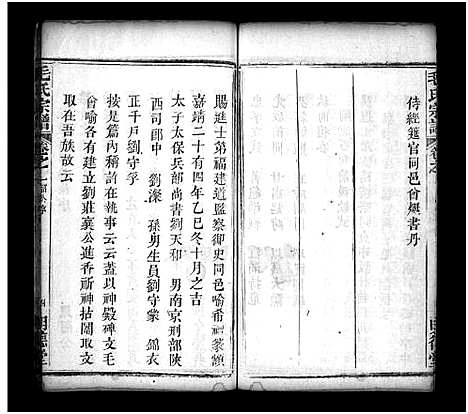 毛氏宗譜
卷之
侍經筵官同邑曾燦書丹
賜進士第福建道監察御史同邑喻希禮篆額
嘉靖二十有四年乙巳冬十月之吉
太子太保兵部尚書劉天和　男南京刑部陝
西司郎中　劉濚　孫男生員劉守蒙　錦衣
正千戶劉守孚
按是篇內稱許在執事云云蓋以神殿碑文毛
曾喻各有建立劉莊襄公進香所神拈鬮取文
取在吾族故云
毛氏宗譜
卷之一
明德堂